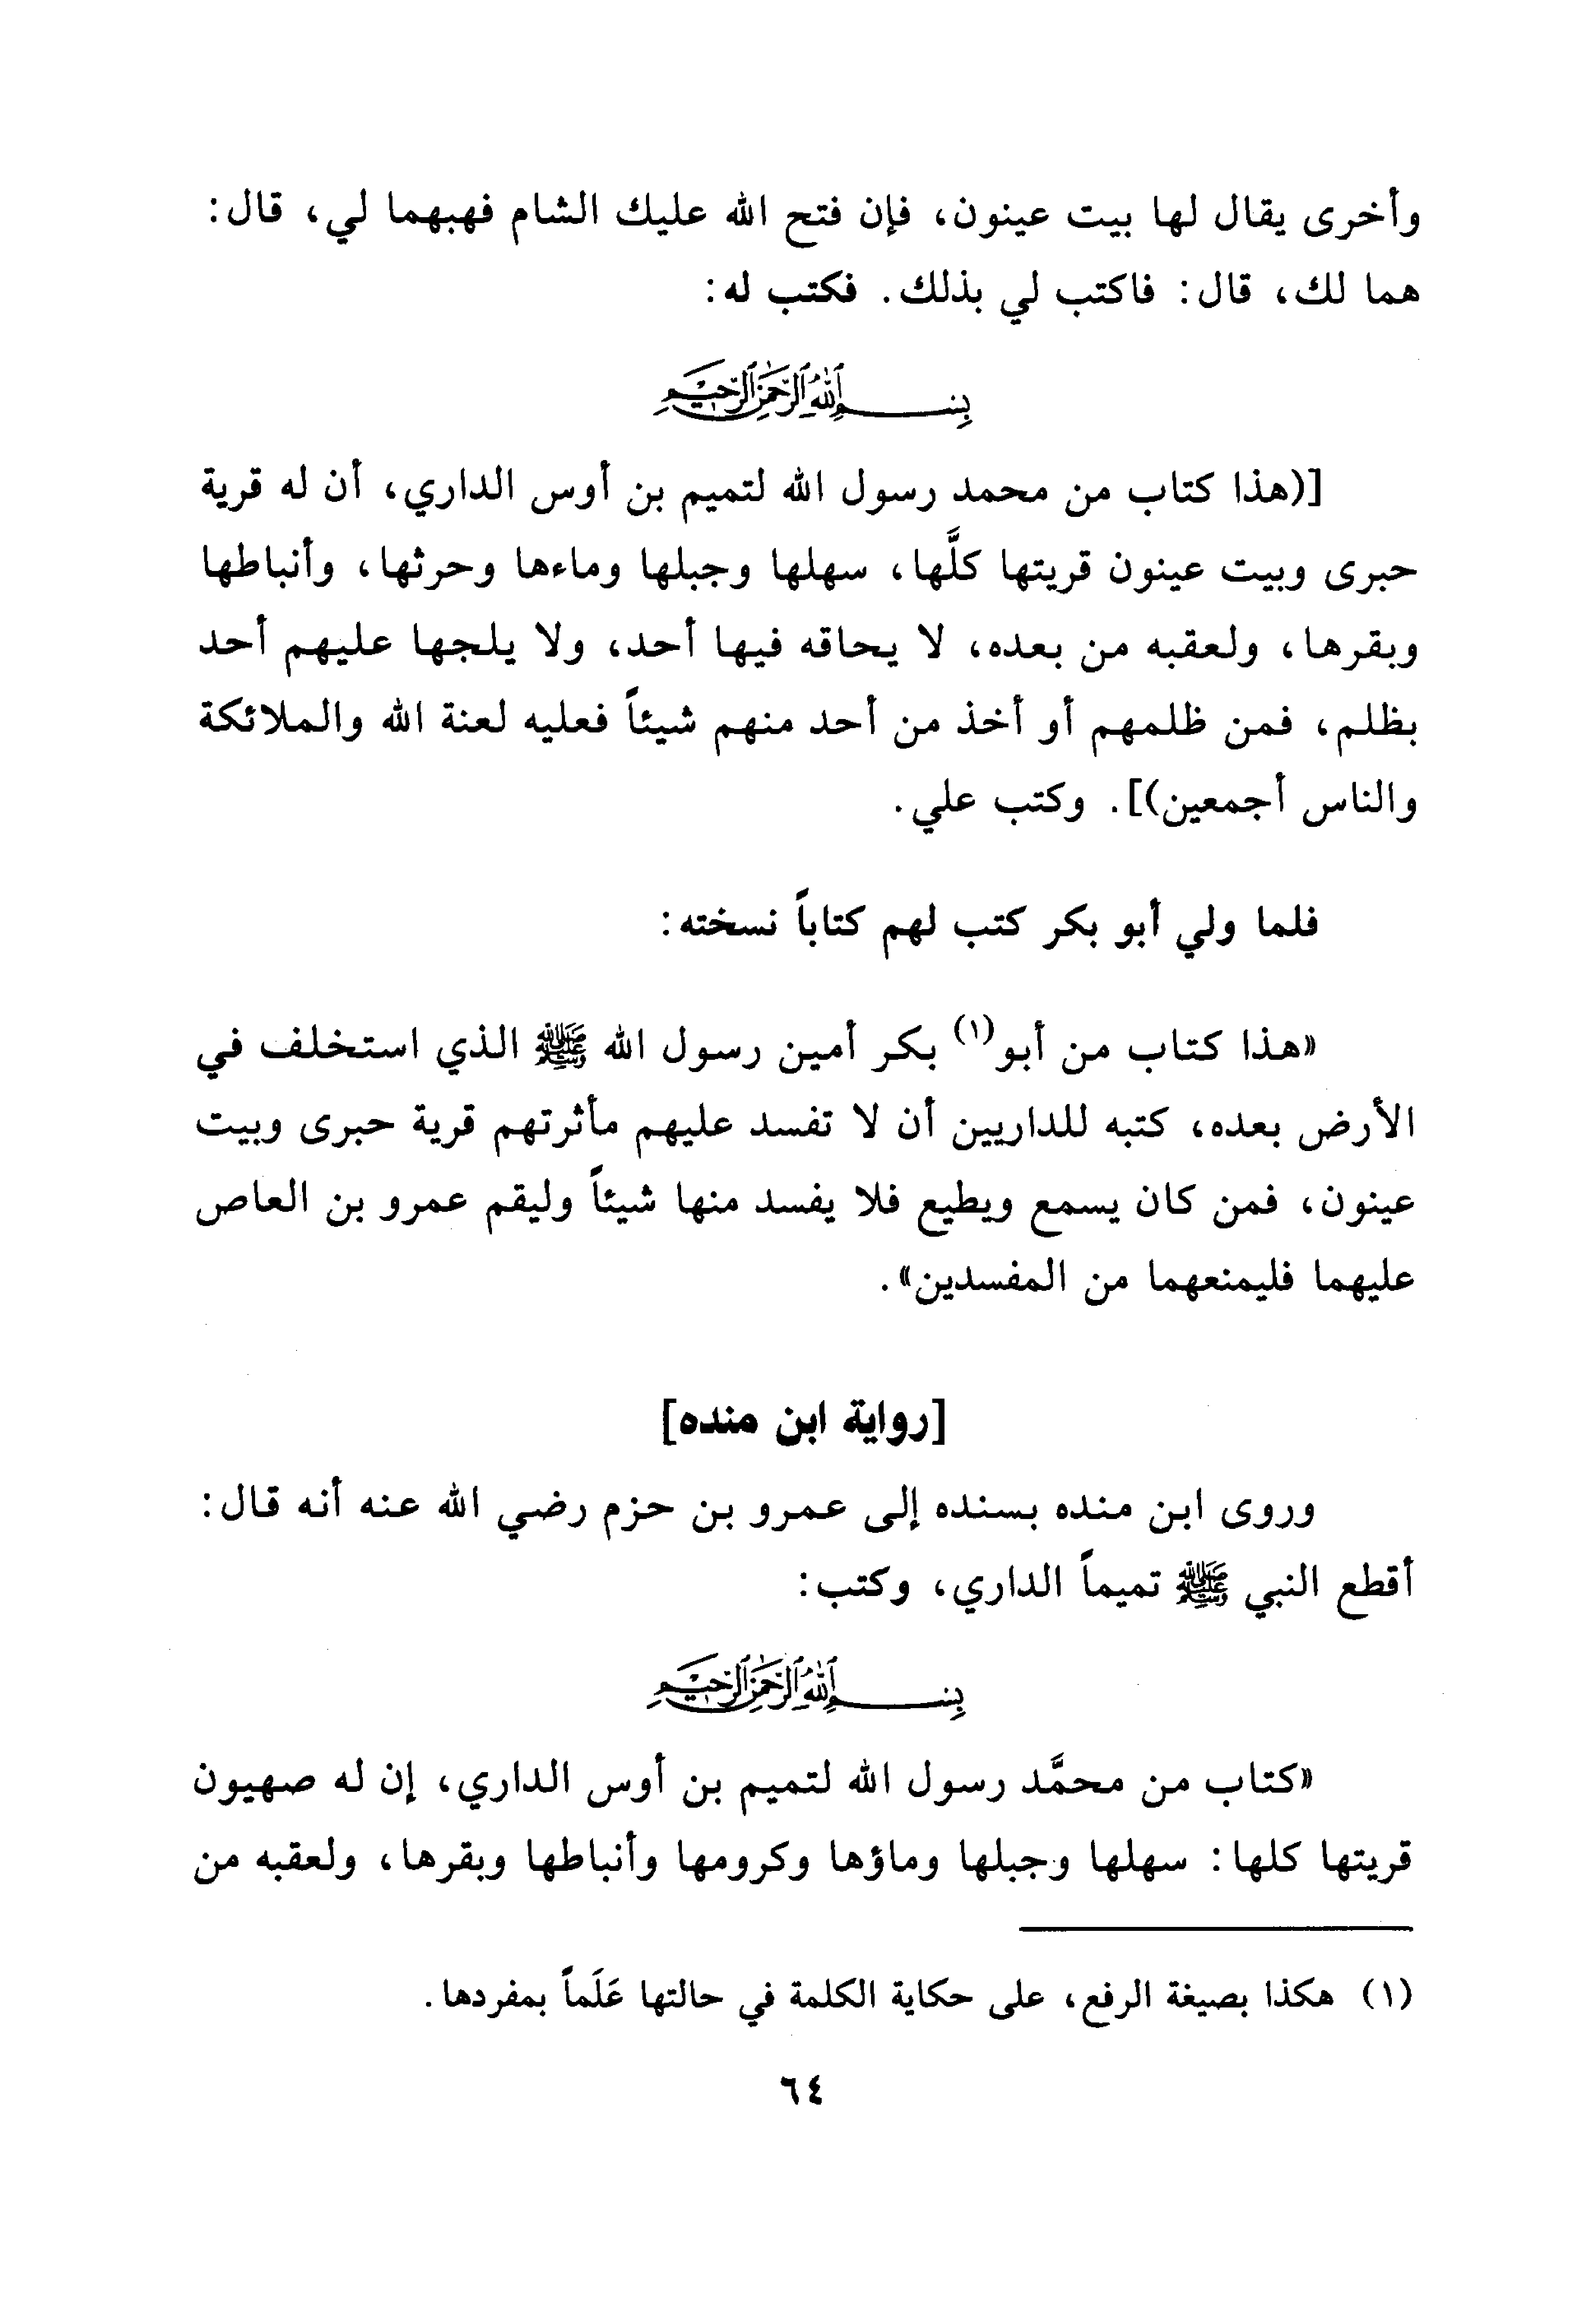 وأخرى يقال لها بيت عينون، فإن فتح الله عليك الشام فهبهما لي، قال:
هما لك، قال: فاكتب لي بذلك. فكتب له:
بسم الله الرحمن الرحيم
[(هذا كتاب من محمد رسول الله لتميم بن أوس الداري، أن له قرية
حبرى وبيت عينون قريتها كلَّها، سهلها وجبلها وماءها وحرثها، وأنباطها
وبقرها، ولعقبه من بعده، لا يحاقه فيها أحد، ولا يلجها عليهم أحد
بظلم، فمن ظلمهم أو أخذ من أحد منهم شيئاً فعليه لعنة الله والملائكة
والناس أجمعين)]. وكتب علي.
فلما ولي أبو بكر كتب لهم كتاباً نسخته:
«هذا كتاب من أبو(١) بكر أمين رسول الله ﷺ الذي استخلف في
الأرض بعده، كتبه للداريين أن لا تفسد عليهم مأثرتهم قرية حبرى وبيت
عينون، فمن كان يسمع ويطيع فلا يفسد منها شيئاً وليقم عمرو بن العاص
عليهما فليمنعهما من المفسدين».
[رواية ابن منده]
وروى ابن منده بسنده إلى عمرو بن حزم رضي الله عنه أنه قال:
أقطع النبي ﷺ تميماً الداري، وكتب:
بسم الله الرحمن الرحيم
«كتاب من محمَّد رسول الله لتميم بن أوس الداري، إن له صهيون
قريتها كلها: سهلها وجبلها وماؤها وكرومها وأنباطها وبقرها، ولعقبه من
(١) هكذا بصيغة الرفع، على حكاية الكلمة في حالتها عَلَماً بمفردها.
٦٤